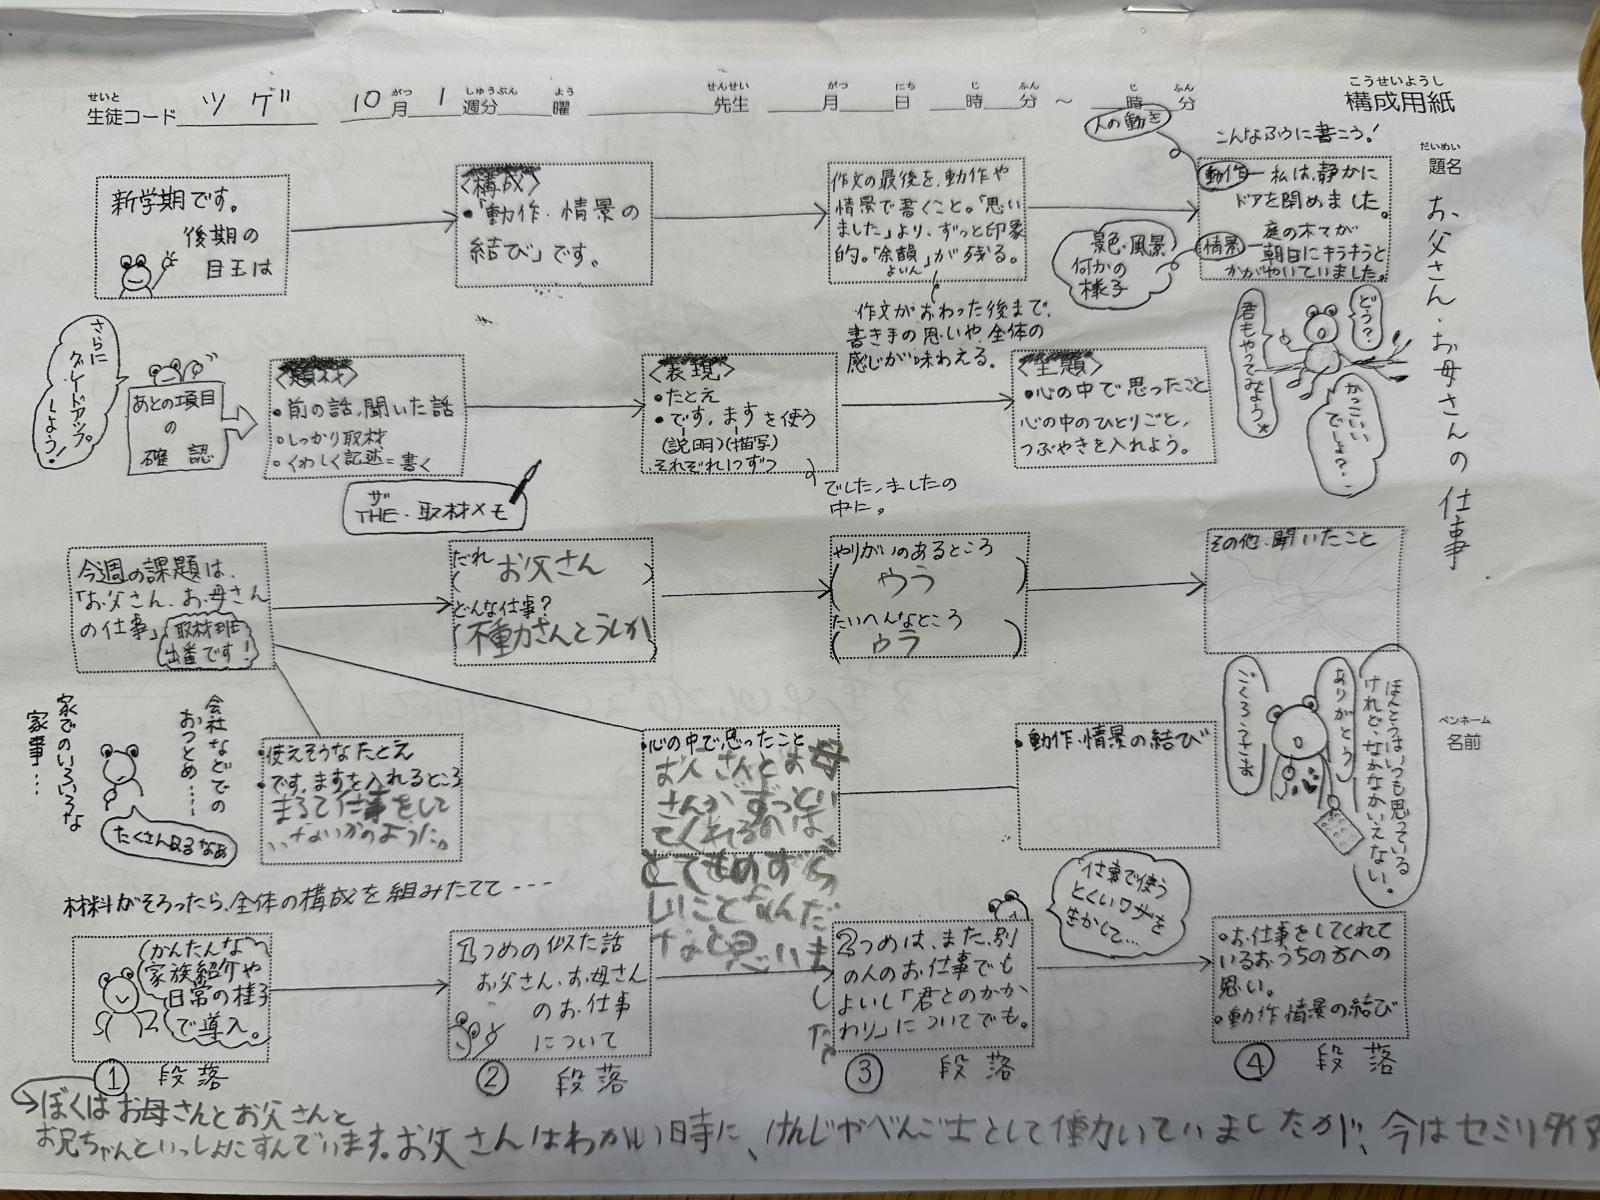 せいと がつ しゅうぶん よう せんせい がつ にち じ ふん じ ふん こうせいようし
生徒コード ツゲ 10月 1週分 曜 先生 月 日 時 分 ~ 時 分 構成用紙
だいめい
題名
お父さん・お母さんの仕事
ペンネーム
名前
新学期です。
後期の
目玉は
〈構成〉
・「動作・情景の
結び」です。
作文の最後を、動作や
情景で書くこと。「思い
ました」より、ずっと印象
的。「余韻」が残る。
よいん
作文がおわった後まで、
書き手の思いや、全体の
感じが味わえる。
人の動き
こんなふうに書こう!
動作―私は、静かに
ドアを閉めました。
情景―庭の木々が
朝日にキラキラと
かがやいていました。
景色・風景
何かの
様子
どう?
君もやってみなよう。
かっこいい
でしょ?‥
さらに
グレードアップ
しよう!
あとの項目
の
確認
〈題材〉
・前の話、聞いた話
・しっかり取材
・くわしく記述=書く
ザ
THE・取材メモ
〈表現〉
・たとえ
・です、ますを使う
(説明)(描写)
それぞれ1つずつ
でした、ましたの
中に。
〈主題〉
・心の中で思ったこと
心の中のひとりごと、
つぶやきを入れよう。
今週の課題は、
「お父さん、お母さん
の仕事」
取材班
出番です!
だれ
(お父さん)
どんな仕事?
(不動さんとうしか
やりがいのあるところ
(ウラ)
たいへんなところ
(ウラ)
その他・聞いたこと
ほんとうは、いつも思っている
けれど、なかなかいえない。
ありがとう
ごくろうさま
会社などでの
おつとめ……
家でのいろいろな
家事…
たくさんあるなぁ
・使えそうなたとえ
・です、ますを入れるところ
まるで仕事をして
いないかのように。
・心の中で思ったこと
お父さんとお母
さんがずっとい
てくれるのは、
とてもめずら
しいことなんだ
なと思いま
した。
・動作・情景の結び
材料がそろったら、全体の構成を組みたてて---
かんたんな
家族紹介や
日常の様子
で導入。
① 段落
1つめの似た話
お父さん、お母さん
のお仕事
について
② 段落
2つめは、また、別
の人のお仕事でも
よいし「君とのかか
わり」についてでも。
③ 段落
仕事で使う
とくいワザを
生かして…
・お仕事をしてくれて
いるおうちの方への
思い。
・動作・情景の結び
④ 段落
ぼくはお母さんとお父さんと
お兄ちゃんといっしょにすんでいます。お父さんはわかい時に、けんじやべんご士として働いていましたが、今はセミリタイア